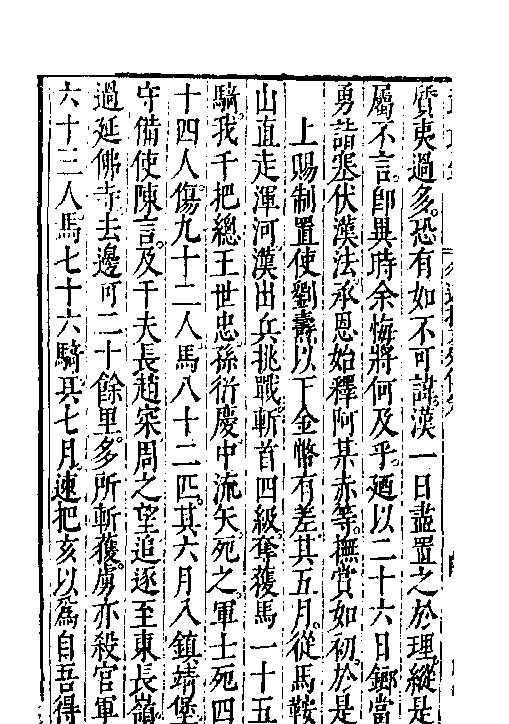 質夷過多恐有如不可諱漢一日盡置之於理縱是
屬不言卽異時余悔將何及乎廼以二十六日鄉當
勇詣塞伏漢法承恩始釋阿某赤等撫賞如初於是
上賜制置使劉燾以下金幣有差其五月從馬鞍
山直走渾河漢出兵挑戰斬首四級奪獲馬一十五
騎我千把總王世忠孫衍慶中流矢死之軍士死四
十四人傷九十二人馬八十二匹其六月入鎮靖堡
守備使陳言及千夫長趙宋周之望追逐至東長嶺
過延佛寺去邊可二十餘里多所斬獲虜亦殺官軍
六十二人馬七十六騎其七月速把亥以為自吾得